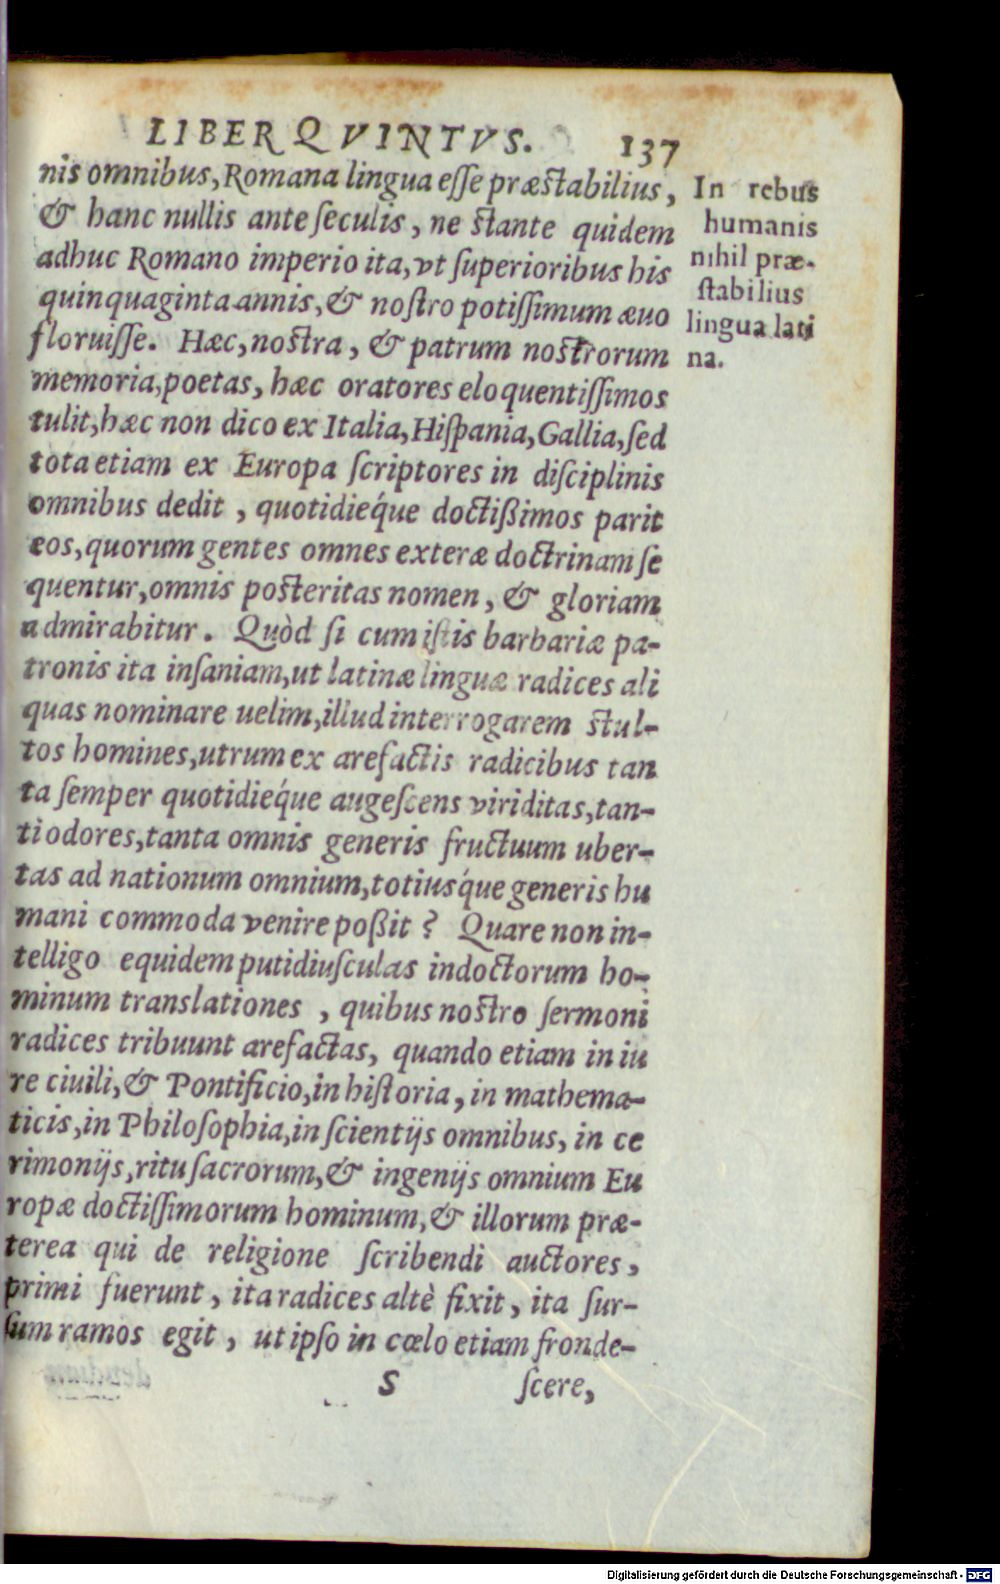 LIBER QVINTVS. 137
nis omnibus, Romana lingua eſſe præstabilius,
& hanc nullis ante ſeculis, ne stante quidem
adhuc Romano imperio ita, vt ſuperioribus his
quinquaginta annis, & noſtro potiſſimum æuo
floruiſſe. Hæc, nostra, & patrum nostrorum
memoria, poetas, hæc oratores eloquentiſſimos
tulit, hæc non dico ex Italia, Hiſpania, Gallia, ſed
tota etiam ex Europa ſcriptores in diſciplinis
omnibus dedit, quotidieq́ue doctißimos parit
eos, quorum gentes omnes exteræ doctrinam ſe
quentur, omnis posteritas nomen, & gloriam
admirabitur. Quòd ſi cum iſtis barbariæ pa-
tronis ita inſaniam, ut latinæ linguæ radices ali
quas nominare uelim, illud interrogarem stul-
tos homines, utrum ex arefactis radicibus tan
ta ſemper quotidieq́ue augeſcens viriditas, tan-
ti odores, tanta omnis generis fructuum uber-
tas ad nationum omnium, totiusq́ue generis hu
mani commoda venire poßit? Quare non in-
telligo equidem putidiuſculas indoctorum ho-
minum translationes, quibus nostro ſermoni
radices tribuunt arefactas, quando etiam in iu
re ciuili, & Pontificio, in hiſtoria, in mathema-
ticis, in Philoſophia, in ſcientijs omnibus, in ce
rimonijs, ritu ſacrorum, & ingenijs omnium Eu
ropæ doctiſſimorum hominum, & illorum præ-
terea qui de religione ſcribendi auctores,
primi fuerunt, ita radices altè fixit, ita ſur-
ſum ramos egit, ut ipſo in cœlo etiam fronde-
S ſcere,
In rebus
humanis
nihil præ-
ſtabilius
lingua lati
na.
Digitalisierung gefördert durch die Deutsche Forschungsgemeinschaft - DFG